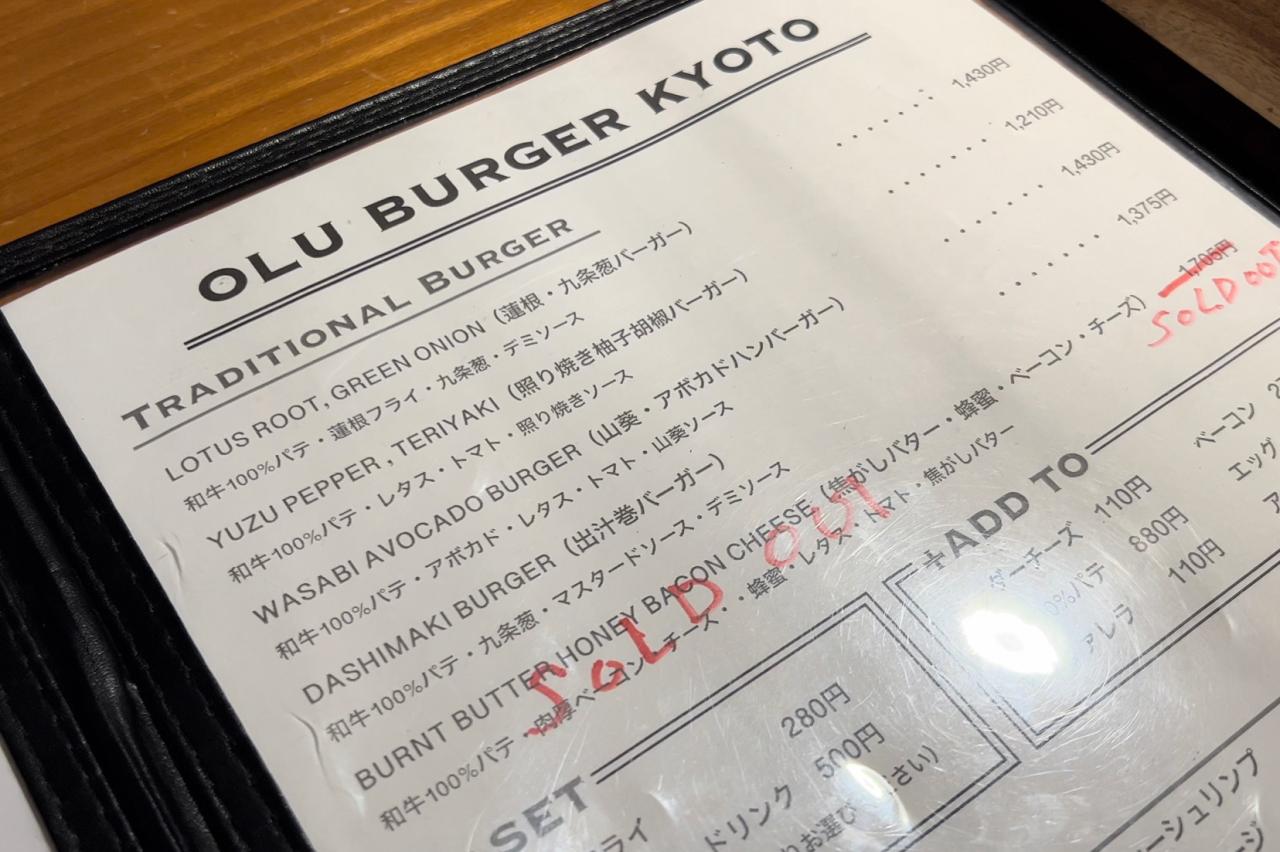 OLU BURGER KYOTO
TRADITIONAL BURGER
LOTUS ROOT, GREEN ONION（蓮根・九条葱バーガー） ........ 1,430円
和牛100%パテ・蓮根フライ・九条葱・デミソース
YUZU PEPPER , TERIYAKI（照り焼き柚子胡椒バーガー） ........ 1,210円
和牛100%パテ・レタス・トマト・照り焼きソース
WASABI AVOCADO BURGER（山葵・アボカドハンバーガー） ........ 1,430円
和牛100%パテ・アボカド・レタス・トマト・山葵ソース
DASHIMAKI BURGER（出汁巻バーガー） ........ 1,375円
和牛100%パテ・九条葱・マスタードソース・デミソース
BURNT BUTTER HONEY BACON CHEESE（焦がしバター・蜂蜜・ベーコン・チーズ） 1,705円
SOLD OUT
和牛100%パテ・肉厚ベーコン・チーズ・蜂蜜・レタス・トマト・焦がしバター
SOLD OUT
+ADD TO
ダーチーズ 110円
0%パテ 880円
ァレラ 110円
ベーコン
エッグ
SET
ライ 280円
ドリンク 500円
お選びください）
ーシュリンプ